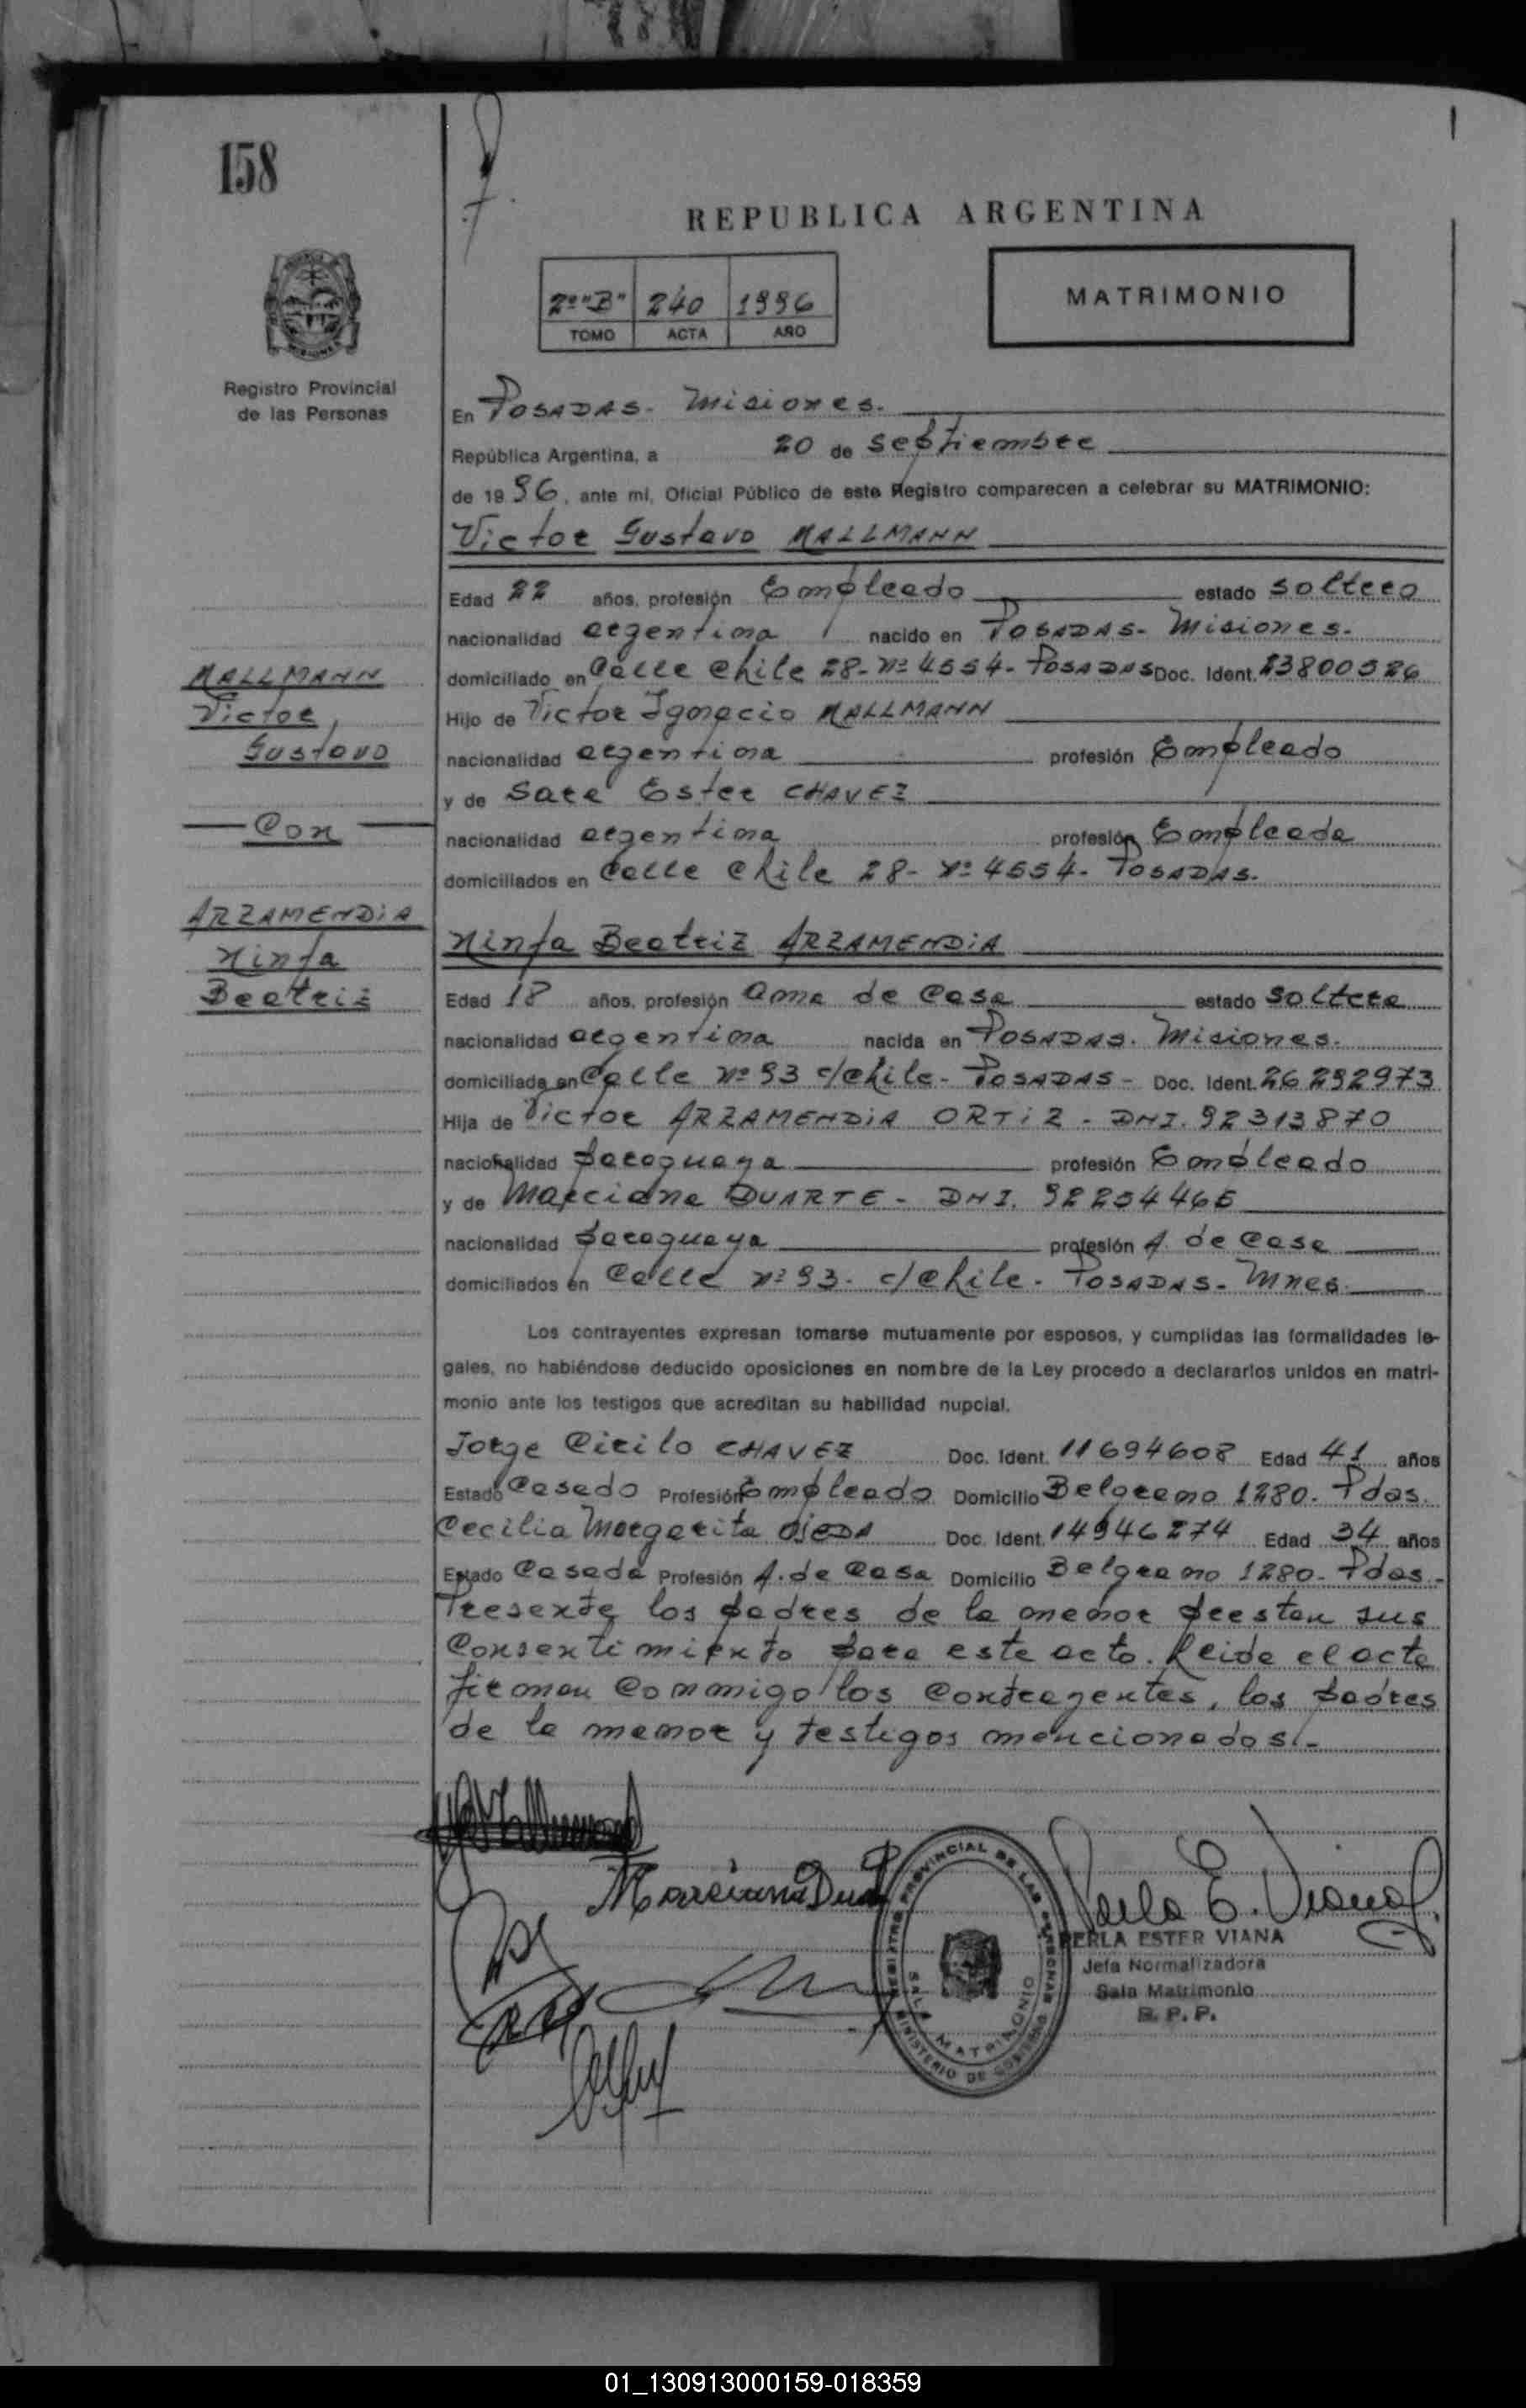 158
REPUBLICA ARGENTINA
2º "B" 240 1996
TOMO ACTA AÑO
MATRIMONIO
Registro Provincial
de las Personas
En POSADAS - Misiones.
República Argentina, a 20 de septiembre
de 1996, ante mí, Oficial Público de este Registro comparecen a celebrar su MATRIMONIO:
Victor Gustavo MALLMANN
Edad 22 años, profesión Empleado estado soltero
nacionalidad argentina nacido en POSADAS - Misiones.
domiciliado en Calle Chile 28 - Nº 4554 - POSADAS Doc. Ident. 23800526
Hijo de Victor Ignacio MALLMANN
nacionalidad argentina profesión Empleado
y de Sara Ester CHAVEZ
nacionalidad argentina profesión Empleada
domiciliados en Calle Chile 28 - Nº 4554 - POSADAS.
MALLMANN
Victor
Gustavo
Con
ARZAMENDIA
Ninfa
Beatriz
Ninfa Beatriz ARZAMENDIA
Edad 18 años, profesión ama de Casa estado soltera
nacionalidad argentina nacida en POSADAS. Misiones.
domiciliada en Calle Nº 93 c/Chile - POSADAS - Doc. Ident. 26292973
Hija de Victor ARZAMENDIA ORTIZ - DNI. 92313870
nacionalidad paraguaya profesión Empleado
y de Marciana DUARTE - DNI. 92254466
nacionalidad paraguaya profesión A. de Casa
domiciliados en Calle Nº 93 - c/Chile - POSADAS - Mnes.
Los contrayentes expresan tomarse mutuamente por esposos, y cumplidas las formalidades le-
gales, no habiéndose deducido oposiciones en nombre de la Ley procedo a declararlos unidos en matri-
monio ante los testigos que acreditan su habilidad nupcial.
Jorge Cirilo CHAVEZ Doc. Ident. 11694608 Edad 41 años
Estado Casado Profesión Empleado Domicilio Belgrano 1280 - Pdas.
Cecilia Margarita OJEDA Doc. Ident. 14946274 Edad 34 años
Estado Casada Profesión A. de Casa Domicilio Belgrano 1280 - Pdas -
Presente los padres de la menor prestan sus
Consentimiento para este acto. Leida el acta
firman Conmigo los Contrayentes, los padres
de la menor y testigos mencionados. -
Marciana Dua
Perla E. Viana
PERLA ESTER VIANA
Jefa Normalizadora
Sala Matrimonio
R. P. P.
REGISTRO PROVINCIAL DE LAS PERSONAS
SALA MATRIMONIO
MINISTERIO DE GOBIERNO
01_130913000159-018359